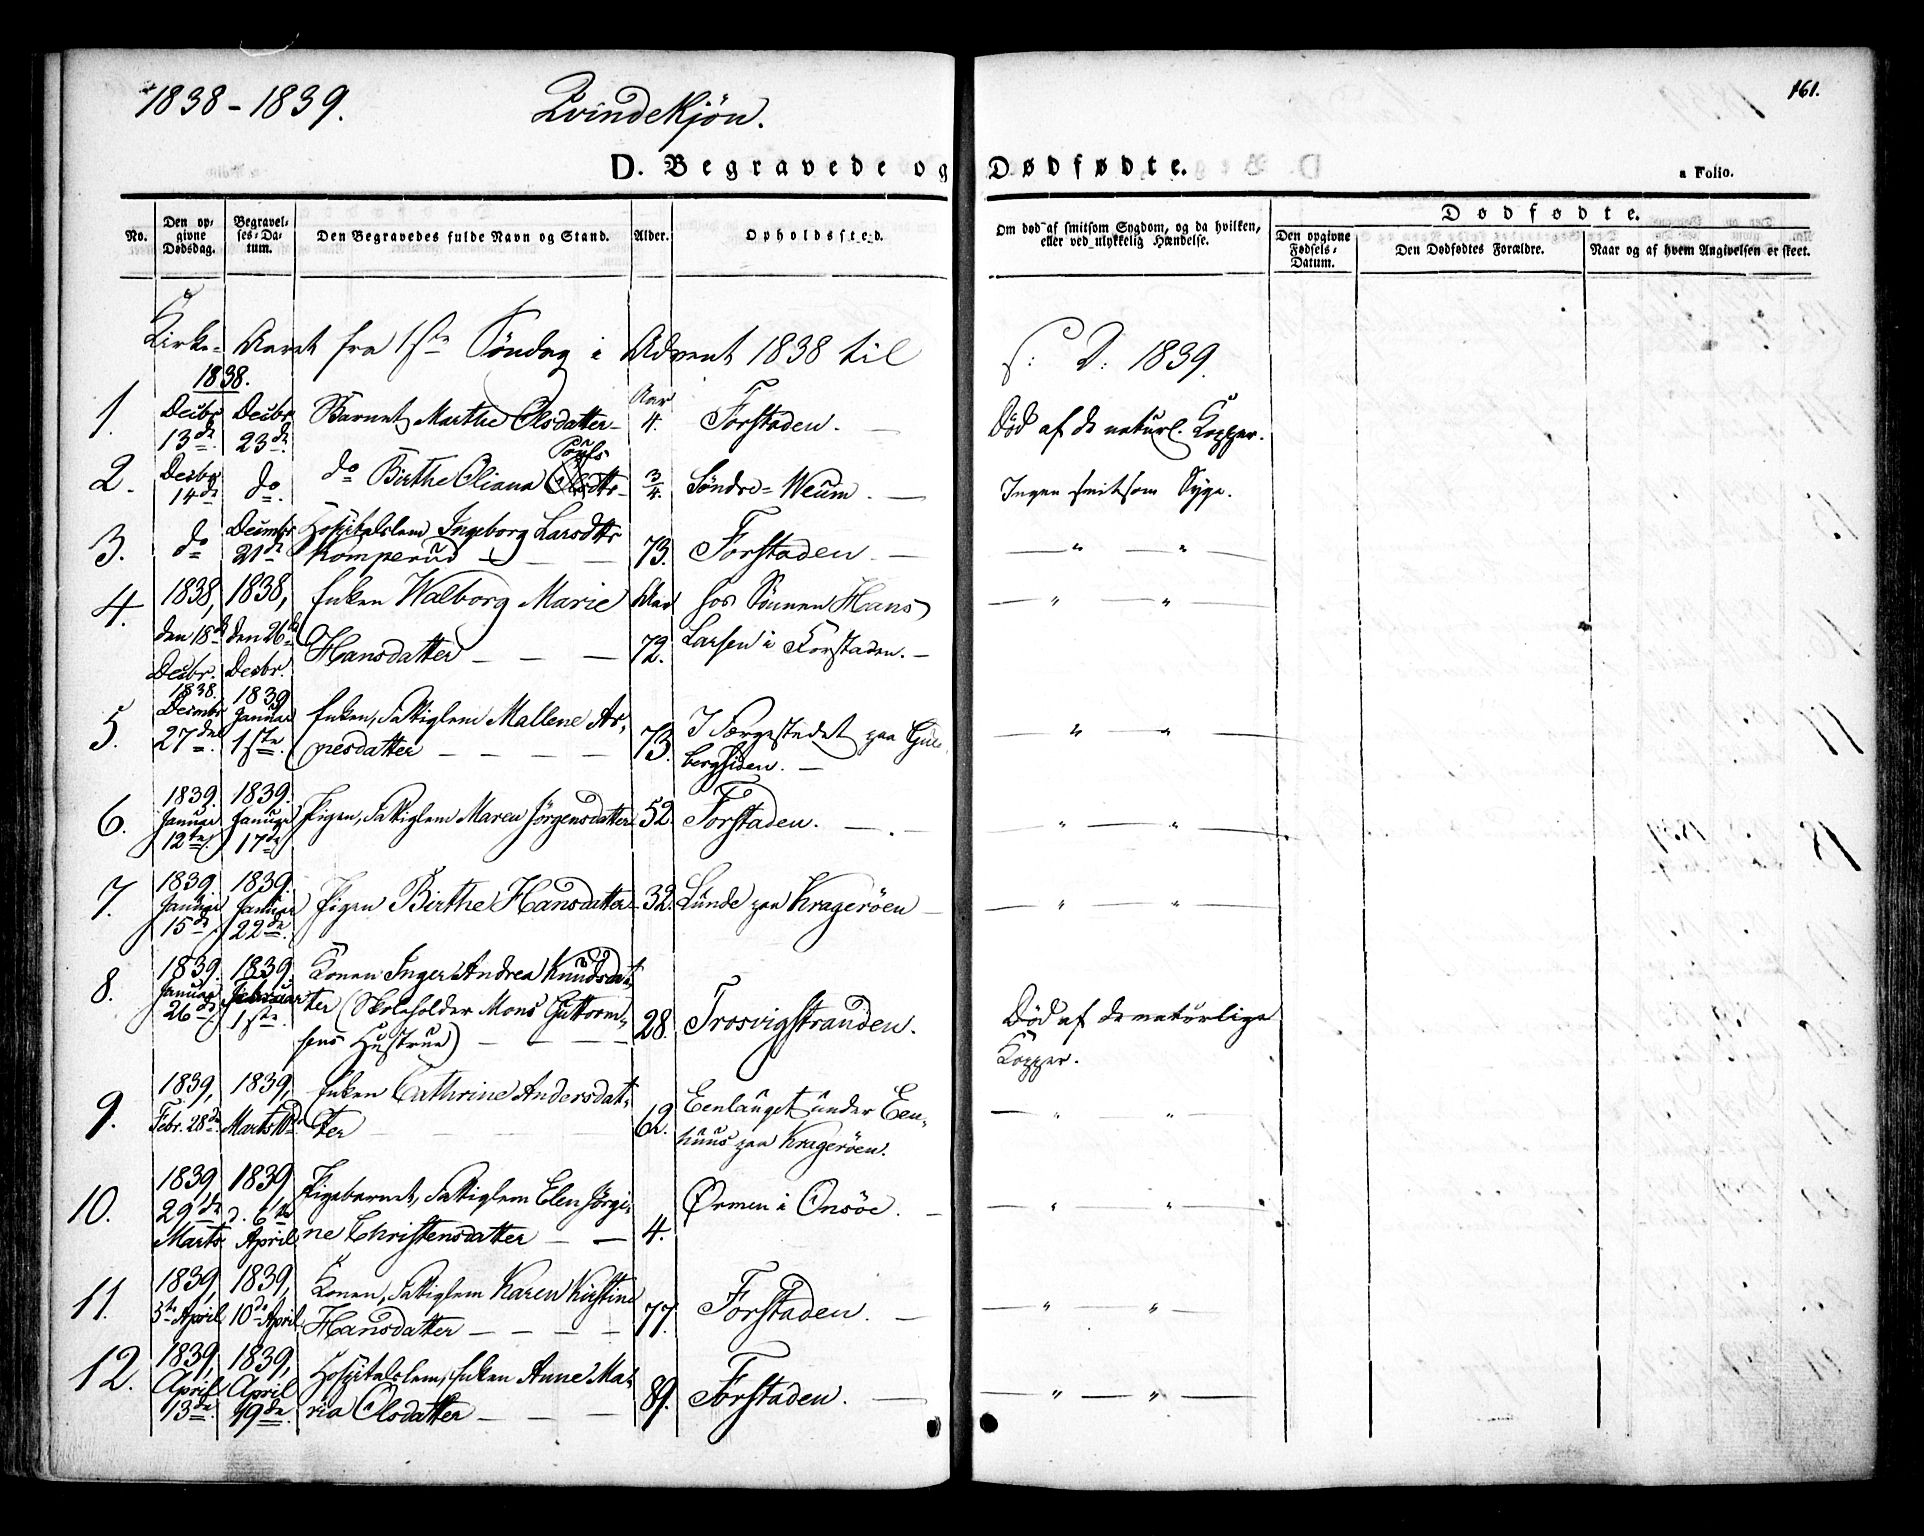 1838-1839. Qvindekjön.
161.
D. Begravede og Dødfødte.
a Folio.
No. Den opgivne Dødsdag. Begravelses-Datum. Den Begravedes fulde Navn og Stand. Alder. Opholdssted. Om død af smitsom Sygdom, og da hvilken, eller ved ulykkelig Hændelse. Dødfødte. Den opgivne Fødsels-Datum. Den Dødfødtes Forældre. Naar og af hvem Angivelsen er skeet.
Kirke-Aaret fra 1ste Söndag i Advent 1838 til S: D: 1839.
1838.
1. Decbr 13de Decbr 23de. Barnet Marthe Olsdatter Aar 4. Forstaden. Död af de naturl. Kopper.
2. Decbr 14de do. do Birthe Oliana Pouls dttr 3/4. Söndre-Weum. Ingen smitsom Syge.
3. do Decmbr 21de Hospitalslem Ingeborg Larsdttr Komperud 73. Forstaden. — " — " —
4. 1838, den 18de Decbr. 1838, den 26de Decbr. Enken Walborg Marie Hansdatter 72. hos Sönnen Hans Larsen i Forstaden. — " — " —
5. 1838. Decmbr 27de 1839 Januar 1ste. Enken, Fattiglem Mallene Arnesdatter 73. I Færgestedet paa Gulbergsiden. — " — " —
6. 1839. Januar 12te 1839. Januar 17de Pigen, Fattiglem Maren Jörgensdatter 52. Forstaden. — " — " —
7. 1839. Januar 15de 1839. Januar 22de. Pigen Birthe Hansdatter 32. Lunde paa Krageröen — " — " —
8. 1839. Januar 26de 1839. Februar 1ste. Konen Inger Andrea Knudsdatter (Skoleholder Mons Guttormsens Hustrue) 28. Trosvigstranden. Död af de naturlige Kopper.
9. 1839, Febr. 28de. 1839, Marts 10de Enken Cathrine Andersdatter 62. Eenlauget under Eenhuus paa Krageröen. — " — " —
10. 1839, 29de Marts 1839, d. 6te April Pigebarnet, Fattiglem Elen Jörgine Christensdatter 4. Ørmen i Onsöe. — " — " —
11. 1839, 3de April 1839, 10de April Konen, Fattiglem Karen Kirstine Hansdatter 77. Forstaden. — " — " —
12. 1839, April 13de. 1839, April 19de. Hospitalslem, Enken Anne Maria Olsdatter 89. Forstaden. — " — " —